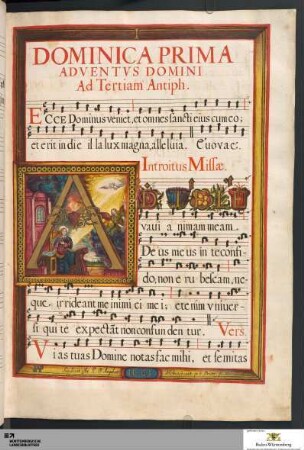 DOMINICA PRIMA
ADVENTVS DOMINI
Ad Tertiam Antiph.
ECCE Dominus veniet, et omnes sancti eius cum eo;
et erit in die illa lux magna, alleluia. Euovae:
Introitus Missæ.
AD TE LE
vavi animam meam.
Deus meus in te confi
do, non erubescam, ne-
que irrideant me inimici mei: etenim univer
si qui te expectāt non confunden tur. Vers.
Vias tuas Domine notas fac mihi, et semitas
BADISCHE
LANDESBIBLIOTHEK
Baden-Württemberg